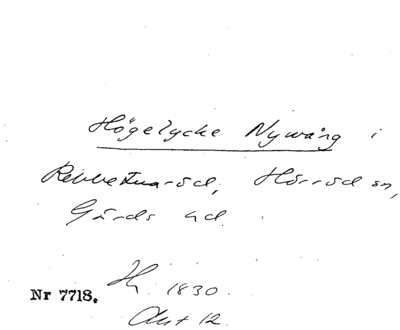 Högelycke Nywång i
Rebbetuaröd, Hörröd sn,
Gärds hd.
Hj. 1830.
Nr 7718.
Akt 12.